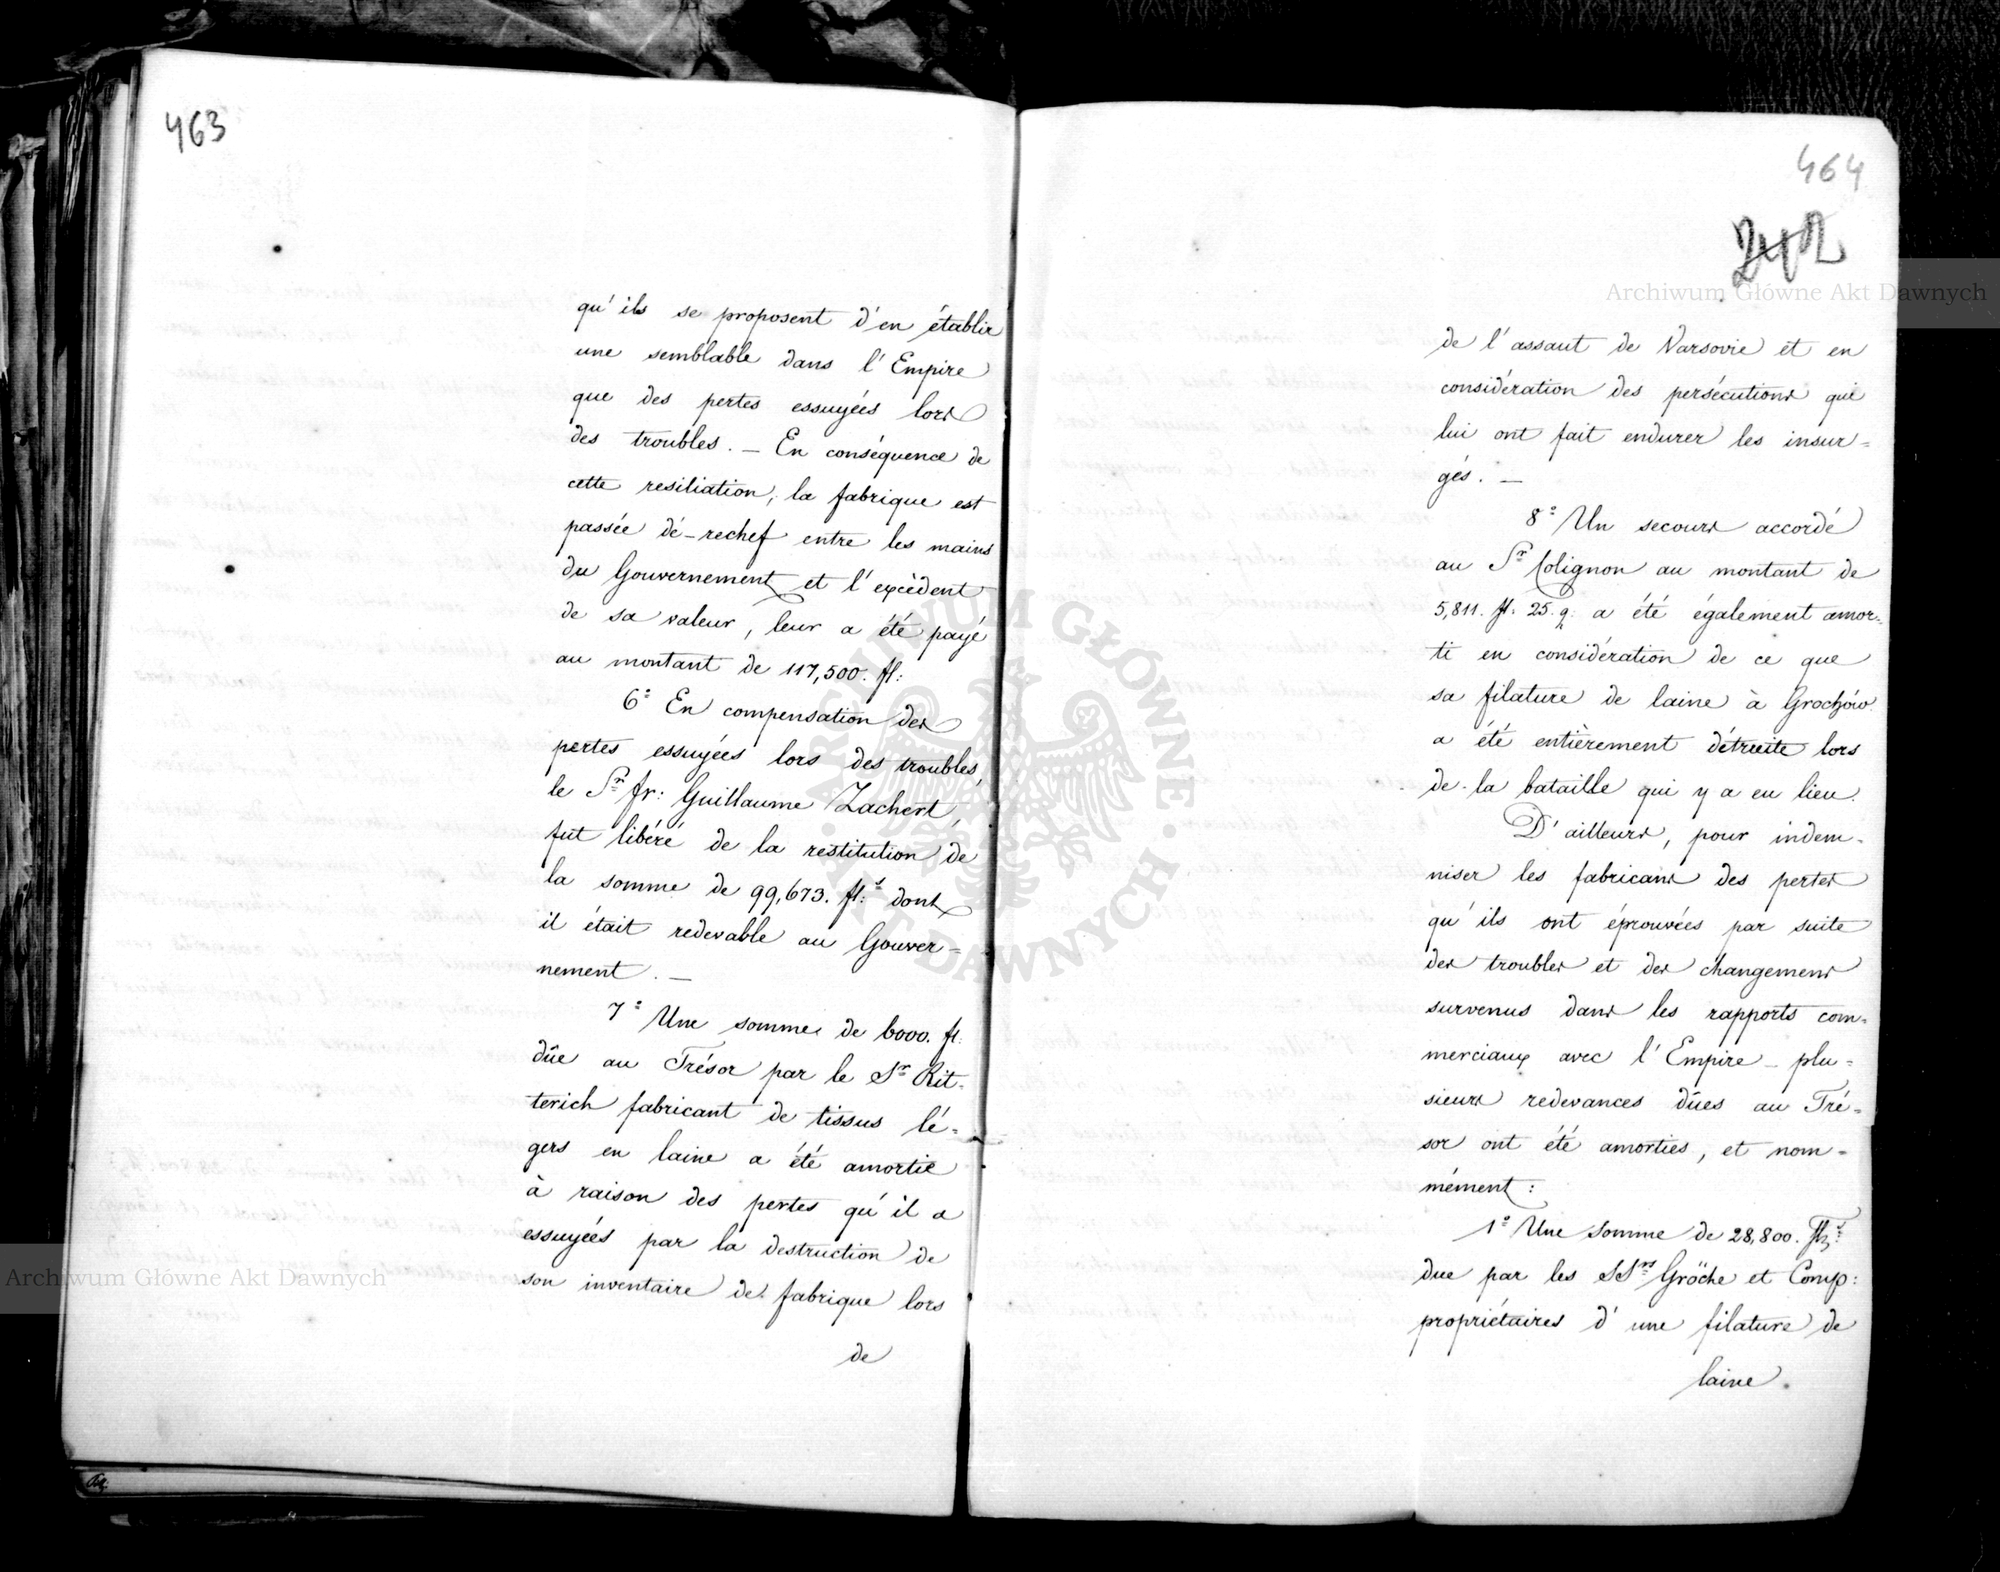 463
qu'ils se proposent d'en établir
une semblable dans l'Empire
que des pertes essuyées lors
des troubles. — En conséquence de
cette resiliation, la fabrique est
passée dé-rechef entre les mains
du Gouvernement et l'excédent
de sa valeur, leur a été payé
au montant de 117,500. fl:
6° En compensation des
pertes essuyées lors des troubles,
le Sr fr: Guillaume Zachert,
fut libéré de la restitution de
la somme de 99,673. fl:s dont
il était redevable au Gouver=
nement. —
7° Une somme de 6000. fl.
dûe au Trésor par le Sr Rit-
terich fabricant de tissus lé=
gers en laine a été amortie
à raison des pertes qu'il a
essuyées par la destruction de
son inventaire de fabrique lors
de
464
242
de l'assaut de Varsovie et en
considération des persécutions que
lui ont fait endurer les insur=
gés. —
8° Un secours accordé
au Sr Colignon au montant de
5,811. fl. 25. g: a été également amor=
ti en considération de ce que
sa filature de laine à Grochów
a été entièrement détruite lors
de la bataille qui y a eu lieu.
D'ailleurs, pour indem-
niser les fabricans des pertes
qu'ils ont éprouvées par suite
des troubles et des changemens
survenus dans les rapports com-
merciaux avec l'Empire — plu=
sieurs redevances dûes au Tré=
sor ont été amorties, et nom=
mément:
1° Une somme de 28,800. fl:s
due par les SSrs Gröche et Comp:
propriétaires d'une filature de
laine.
Archiwum Główne Akt Dawnych
Archiwum Główne Akt Dawnych
ARCHIWUM GŁÓWNE · AKT DAWNYCH ·